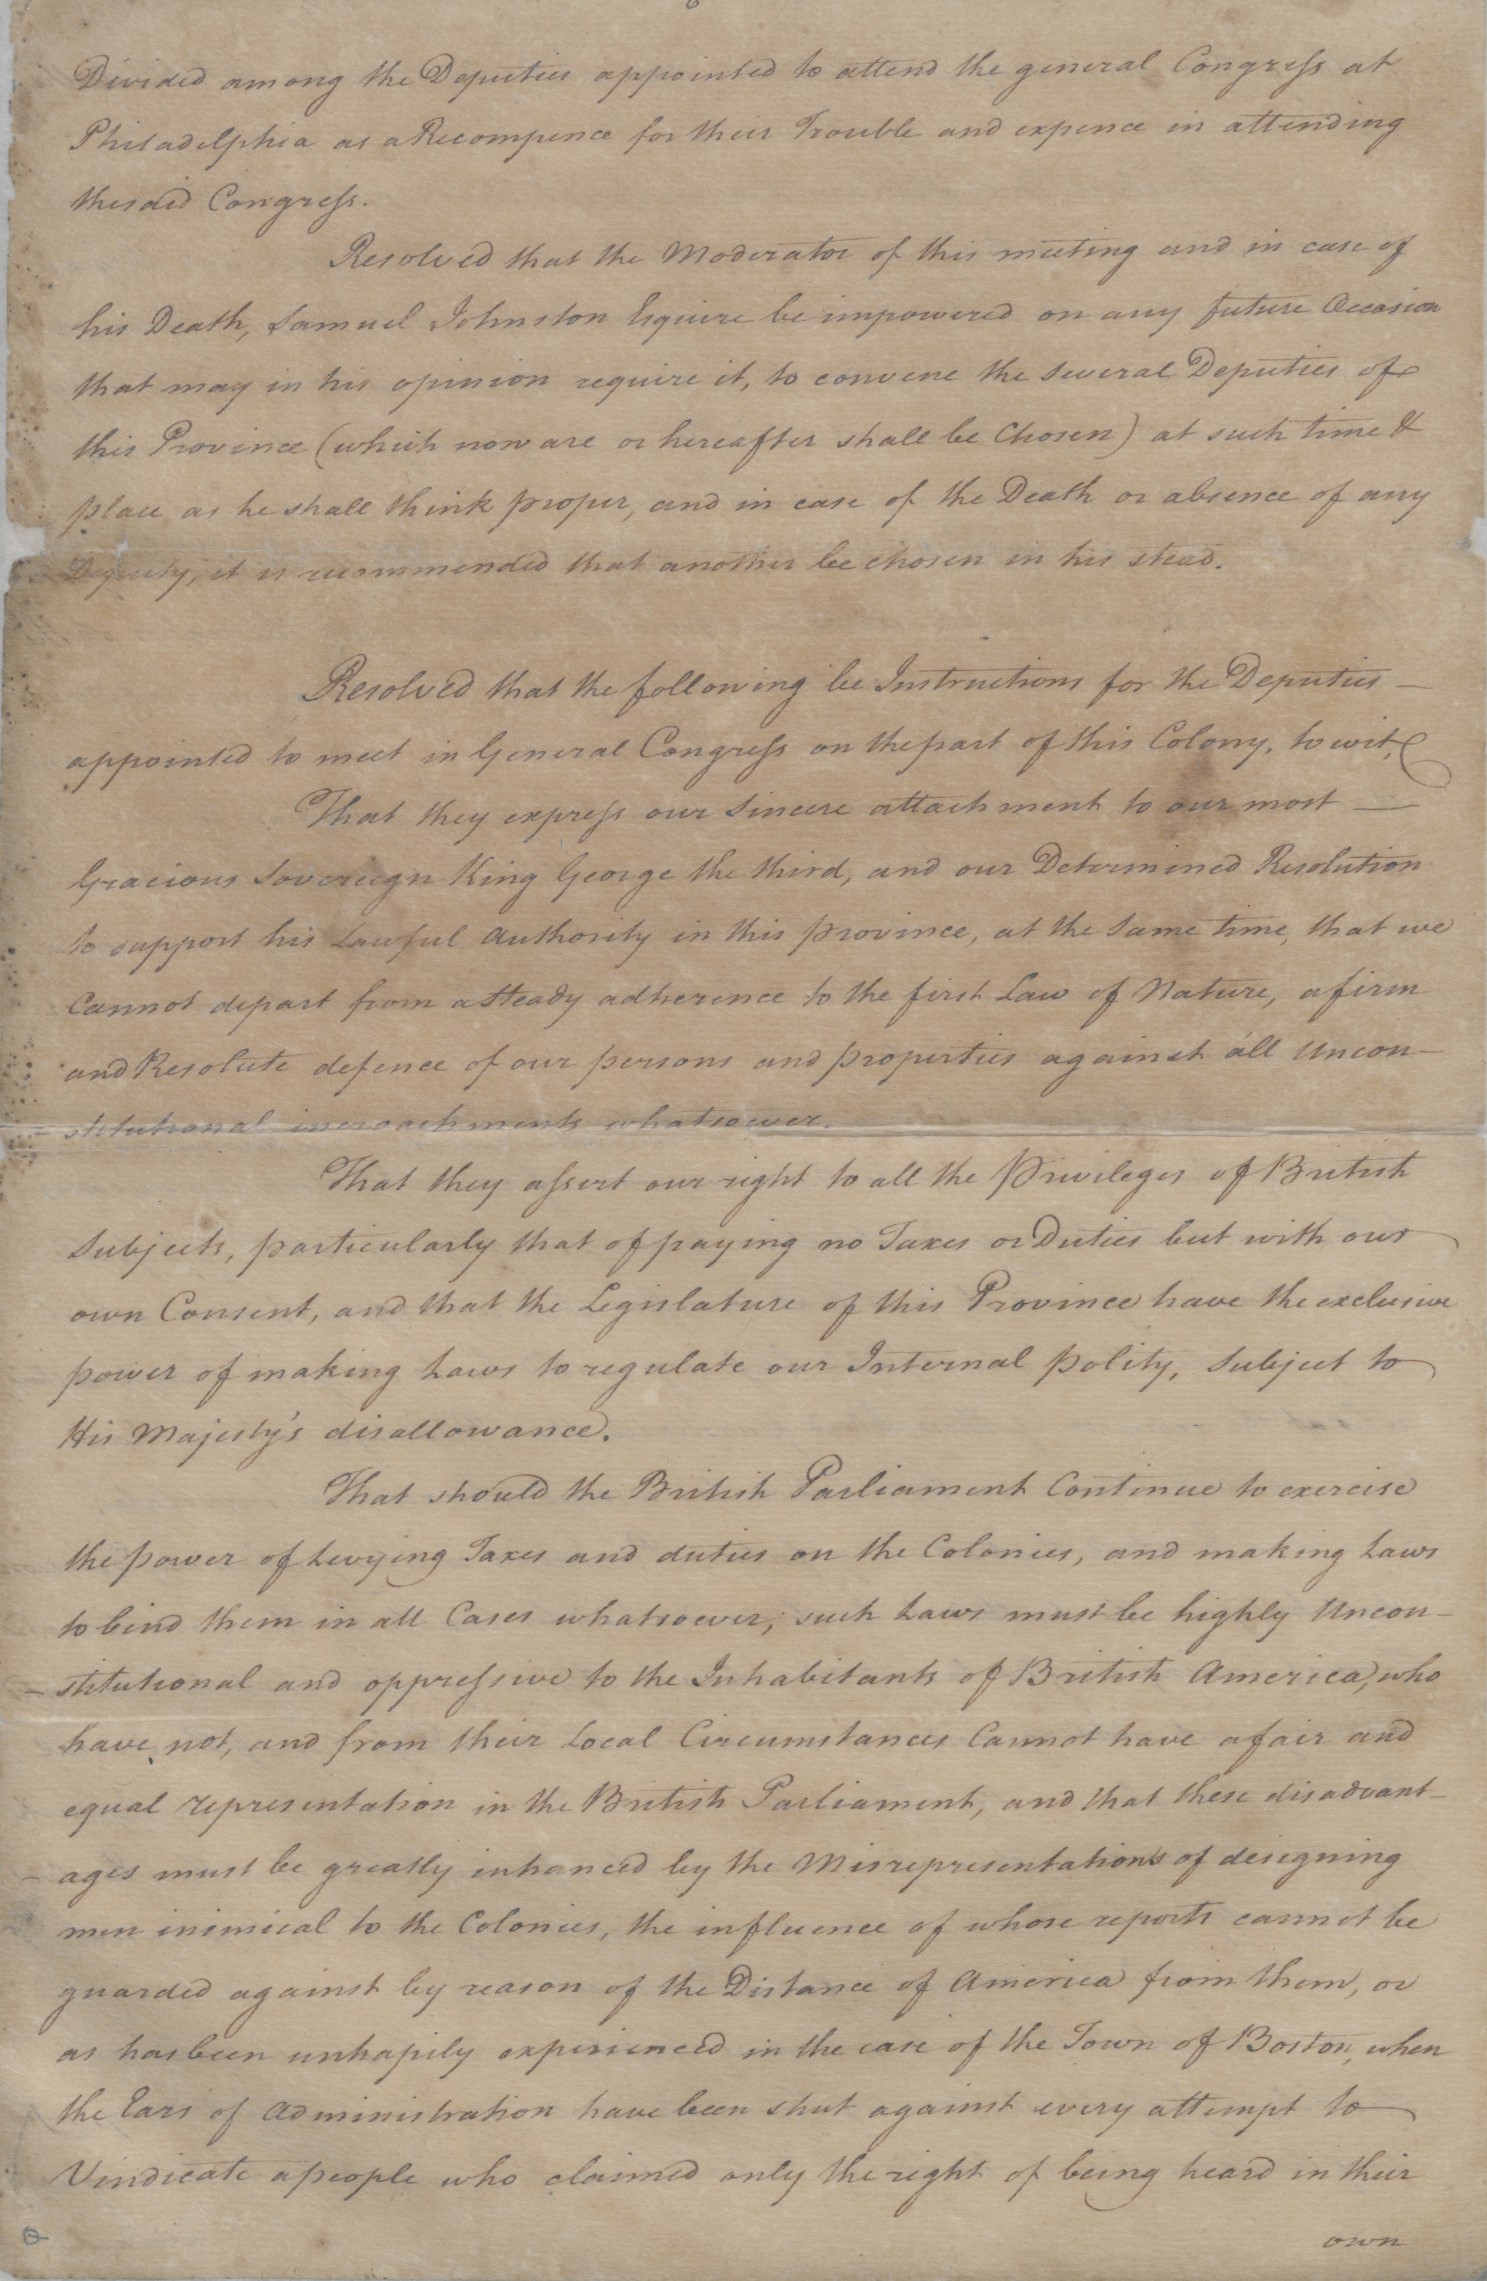 Divided among the Deputies appointed to attend the general Congress at
Philadelphia as a Recompence for their Trouble and expence in attending
the said Congress.
Resolved that the Moderator of this meeting and in case of
his Death, Samuel Johnston Esquire be impowered on any future Occasion
that may in his opinion require it, to convene the several Deputies of
this Province (which now are or hereafter shall be Chosen) at such time &
place as he shall think proper, and in case of the Death or absence of any
Deputy, it is recommended that another be chosen in his stead.
Resolved that the following be Instructions for the Deputies —
appointed to meet in General Congress on the part of this Colony, to wit,
That they express our Sincere attachment to our most —
Gracious Sovereign King George the third, and our Determined Resolution
to support his Lawful Authority in this province, at the Same time, that we
Cannot depart from a Steady adherence to the first Law of Nature, a firm
and Resolute defence of our persons and properties against all Uncon-
-stitutional incroachments whatsoever.
That they assert our right to all the Privileges of British
Subjects, particularly that of paying no Taxes or Duties but with our
own Consent, and that the Legislature of this Province have the exclusive
power of making Laws to regulate our Internal polity, Subject to
His Majesty's disallowance.
That should the British Parliament Continue to exercise
the power of Levying Taxes and duties on the Colonies, and making Laws
to bind them in all Cases whatsoever; such Laws must be highly Uncon-
-stitutional and oppressive to the Inhabitants of British America, who
have not, and from their Local Circumstances Cannot have a fair and
equal representation in the British Parliament, and that these disadvant-
-ages must be greatly inhanced by the Misrepresentations of designing
men inimical to the Colonies, the influence of whose reports cannot be
guarded against by reason of the Distance of America from them, or
as has been unhapily experienced in the case of the Town of Boston, when
the Ears of Administration have been shut against every attempt to
Vindicate a people who claimed only the right of being heard in their
own